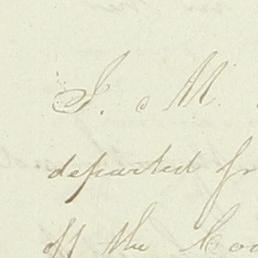 J. M.
departed fr
off the Coa